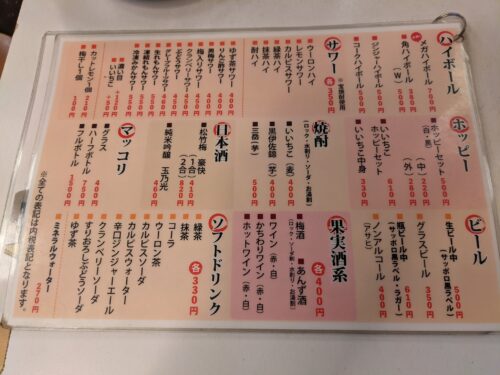 ハイボール
メガハイボール 700円
角ハイボール 380円
〃 (W) 500円
ジンジャーハイボール 500円
コークハイボール 500円
サワー ※宝焼酎使用
各350円
ウーロンハイ
レモンサワー
カルピスサワー
緑茶ハイ
抹茶ハイ
酎ハイ
ゆず茶サワー 400円
りんご酢サワー 400円
青梅サワー 400円
梅入りサワー 400円
クランベリーサワー 400円
ぶどうサワー 450円
生れもんサワー 450円
凍結れもんサワー 550円
冷凍みかんサワー 550円
濃い目 +220円
いいちこ +55円
カットレモン1個 210円
梅干し1個 100円
ホッピー
ホッピーセット 500円
(白・黒)
〃 (中) 220円
〃 (外) 280円
いいちこ
ホッピーセット 610円
いいちこ中身 330円
焼酎
(ロック・ソーダ・水割り・お湯割)
いいちこ(麦) 400円
黒伊佐錦(芋) 400円
三岳(芋) 500円
日本酒
松竹梅 豪快
(1合) 410円
(2合) 820円
純米吟醸 玉乃光 460円
マッコリ
グラス 400円
ハーフボトル 750円
フルボトル 1300円
ビール
生ビール中 500円
(サッポロ黒ラベル)
グラスビール 350円
瓶ビール中 610円
(サッポロ黒ラベル・ラガー)
ノンアルコール 400円
(アサヒ)
果実酒系
各400円
梅酒 あんず酒
(ロック・ソーダ・水割り・お湯割)
ワイン(赤・白)
かちわりワイン(赤・白)
ホットワイン(赤・白)
ソフトドリンク
各330円
緑茶
抹茶
コーラ
ウーロン茶
カルピスウォーター
カルピスソーダ
辛口ジンジャーエール
クランベリーソーダ
すりおろしぶどうソーダ
ゆず茶
ミネラルウォーター 270円
※全ての表記は内税表記となります。